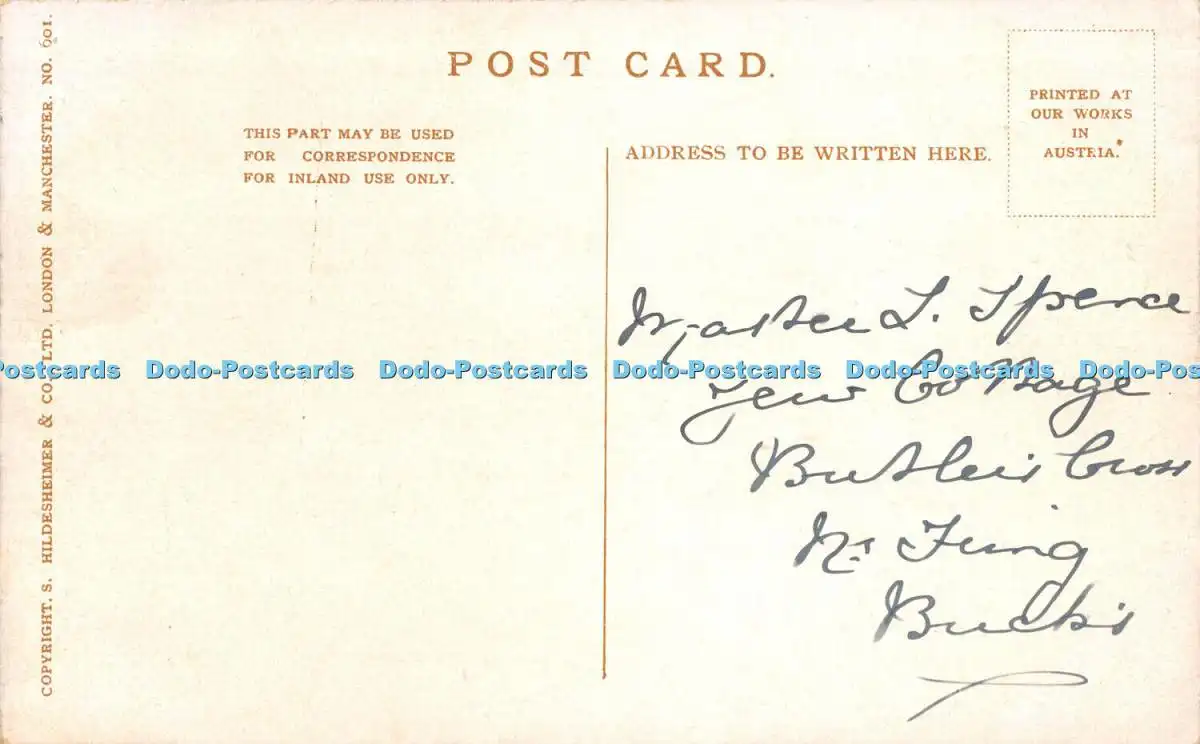 POST CARD.
THIS PART MAY BE USED
FOR CORRESPONDENCE
FOR INLAND USE ONLY.
ADDRESS TO BE WRITTEN HERE.
PRINTED AT
OUR WORKS
IN
AUSTRIA.
COPYRIGHT. S. HILDESHEIMER & CO. LTD. LONDON & MANCHESTER. NO. 601.
Master L. Spence
Yew Cottage
Butler's Cross
Nr Tring
Bucks
Dodo-Postcards Dodo-Postcards Dodo-Postcards Dodo-Postcards